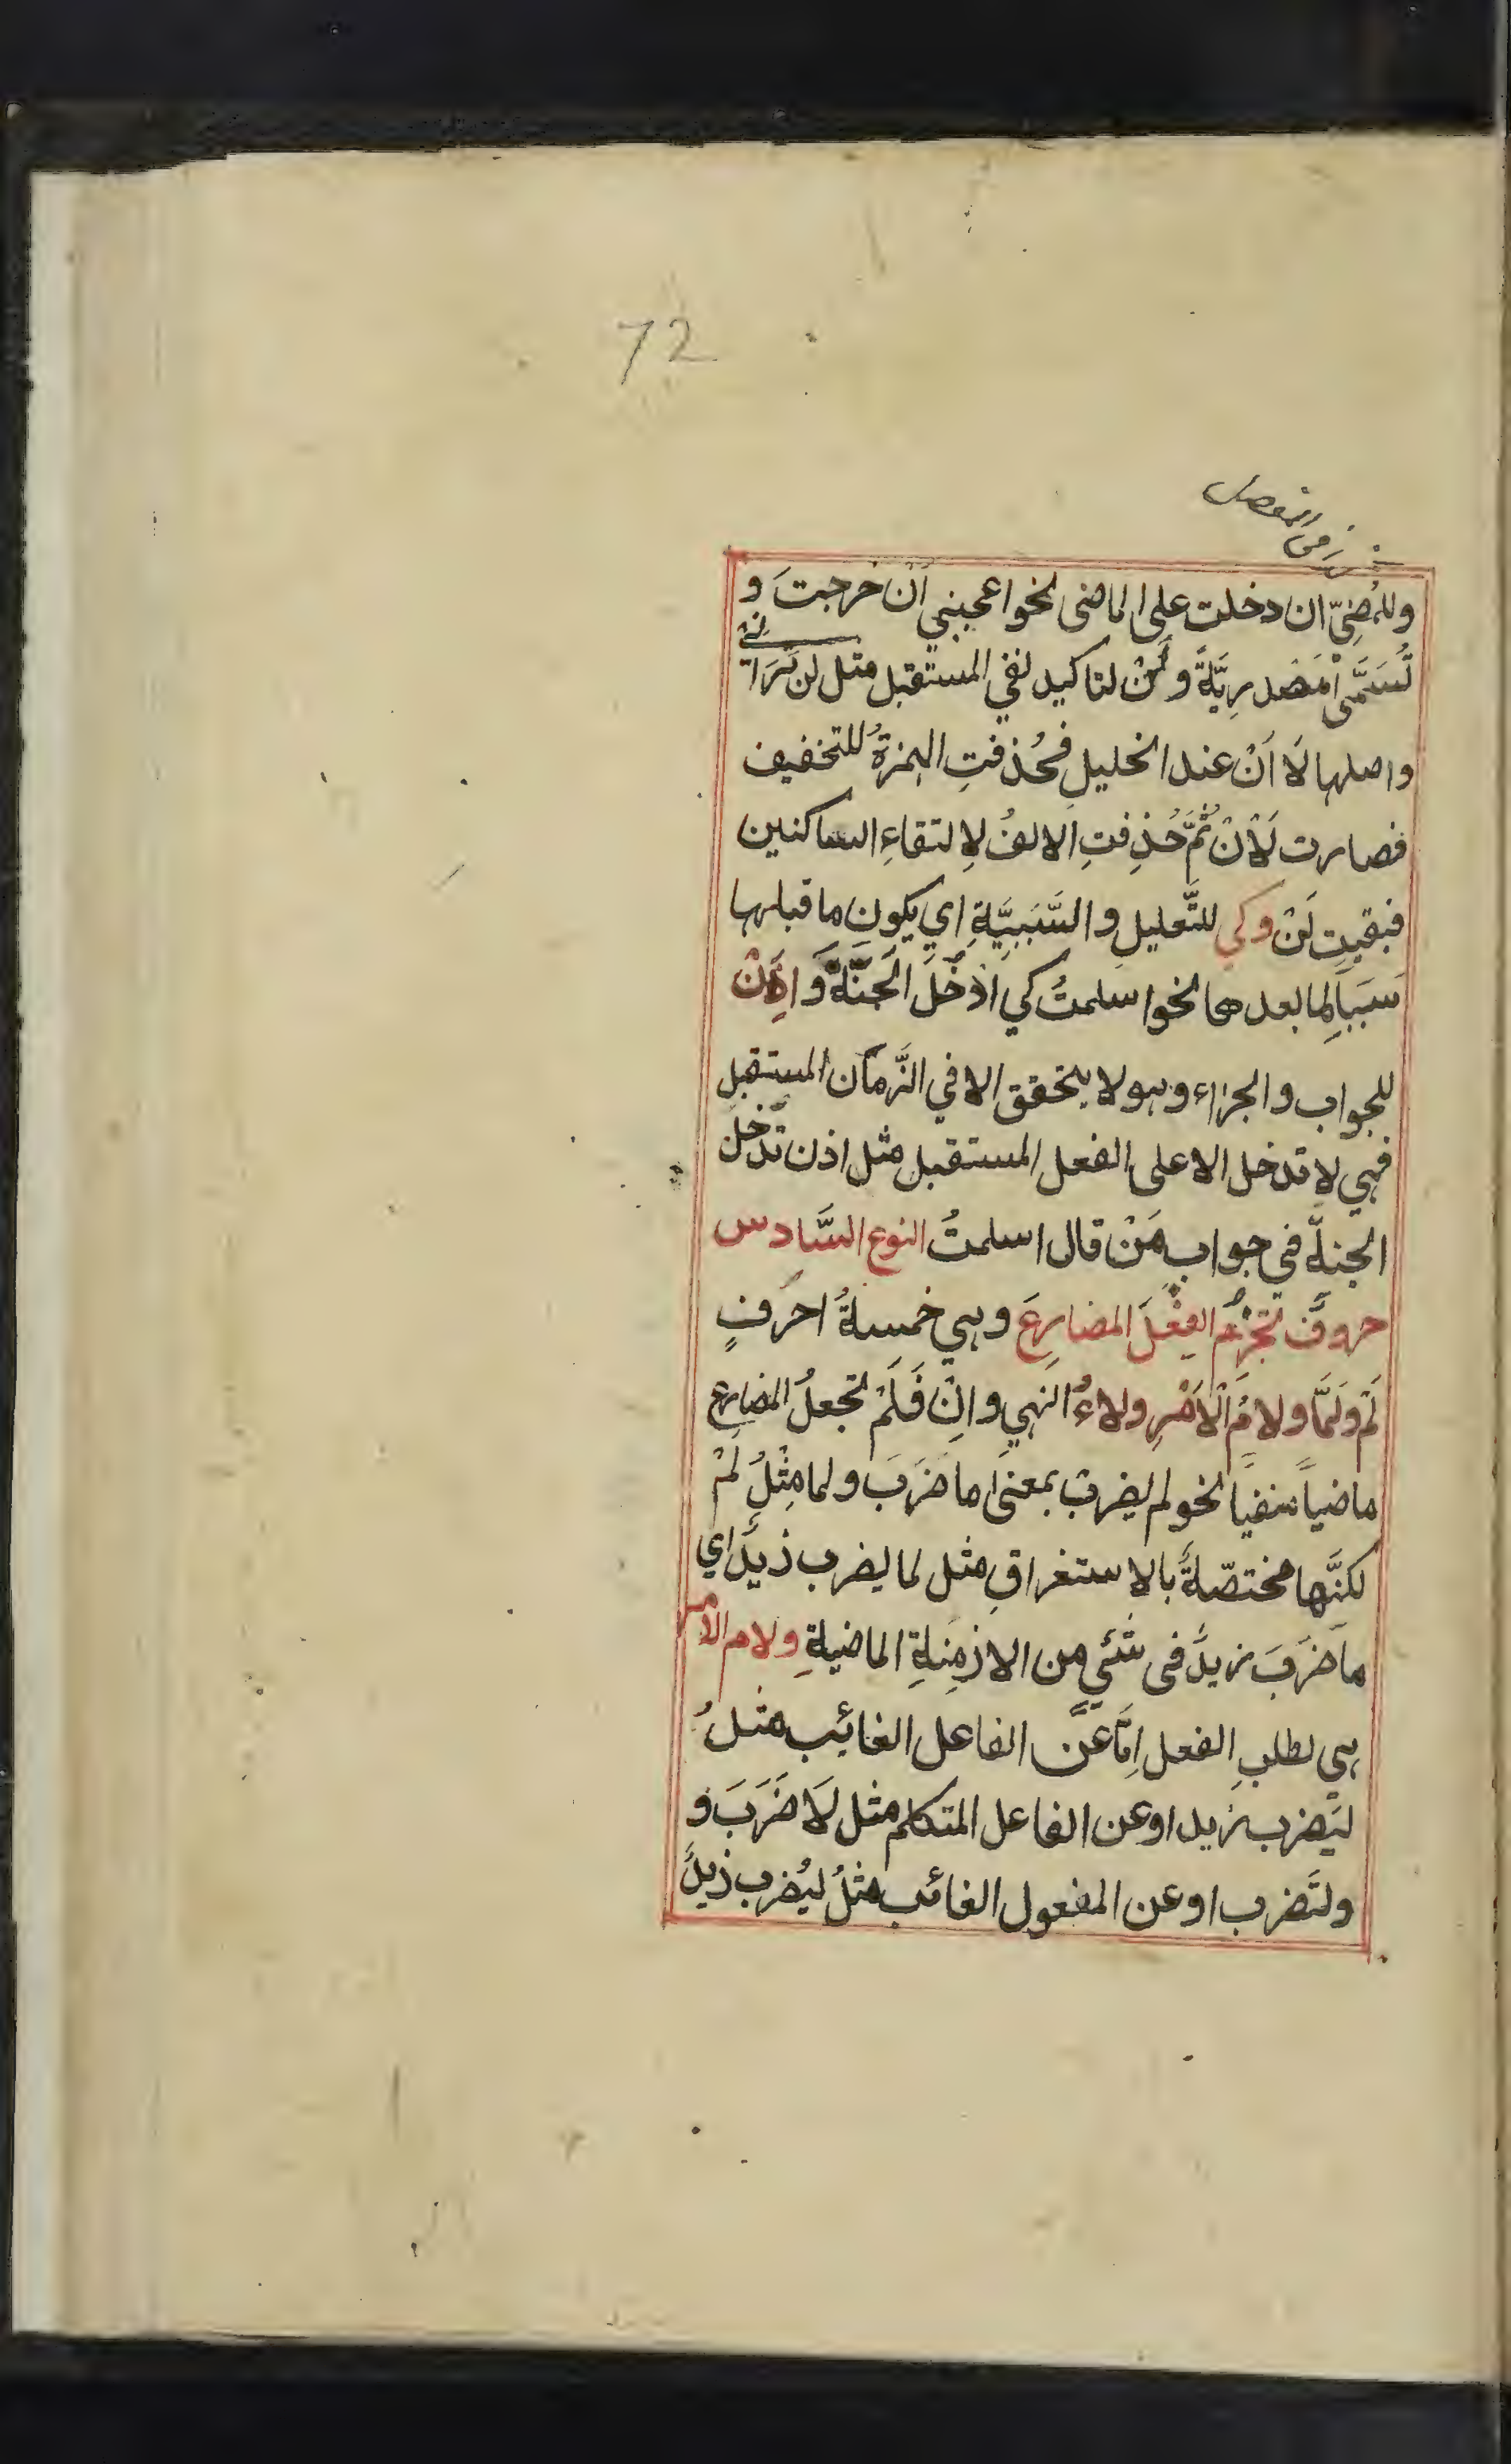 72
وللمُضِيّ ان دخلت على الماضى نحوا عجبني اَنْ خرجتَ و
تُسَمَّى مَصْدرِيَّةً ولَنْ لتاكيد لنفي المستقبل مثل لن تَرَانِيْ
واصلها لَا اَنْ عند الخليل فحُذفتِ الهمزةُ للتخفيف
فصارت لَاْنْ ثُمَّ حُذِفتِ الالفُ لِالتقاءِ الساكنين
فبقيت لَنْ وكي للتَّعليل والسَّبَبِيَّةِ اي يكون ما قبلها
سَبَباً لِما بعدها نحوا سلمتُ كي اَدْخُلَ الجَنَّةَ وَاِذَنْ
للجواب والجزاء وهو لا يتحقق الا في الزَّمان المستقبل
فهي لا تدخل الا على الفعل المستقبل مثل اذن تَدْخُلَ
الجنةَ في جواب مَنْ قال اسلمتُ النوع السَّادس
حروفٌ تجزِمُ الفِعْلَ المضارِعَ وهي خمسةُ احرُفٍ
لَمْ ولَمَّا ولامُ الْاَمْرِ ولاءُ النهي واِنْ فَلَمْ تجعلُ المضارع
ماضياً منفياً نحو لم يضرب بمعنى ما ضَرَبَ ولما مِثْلُ لَمْ
لكنَّها مختصّةٌ بالاستغراقِ مثل لما يضرب زيدٌ اي
ما ضَرَبَ زيدٌ في شئي من الازمِنةِ الماضيةِ ولام الامر
هي لطلبِ الفعل اِمّا عَنْ الفاعل الغائِب مثلُ
ليَضرب زيد او عن الفاعل المتكلم مثل لَاَضرَبَ و
ولنَضرب او عن المفعول الغائب مثلُ ليُضرب زيدٌ